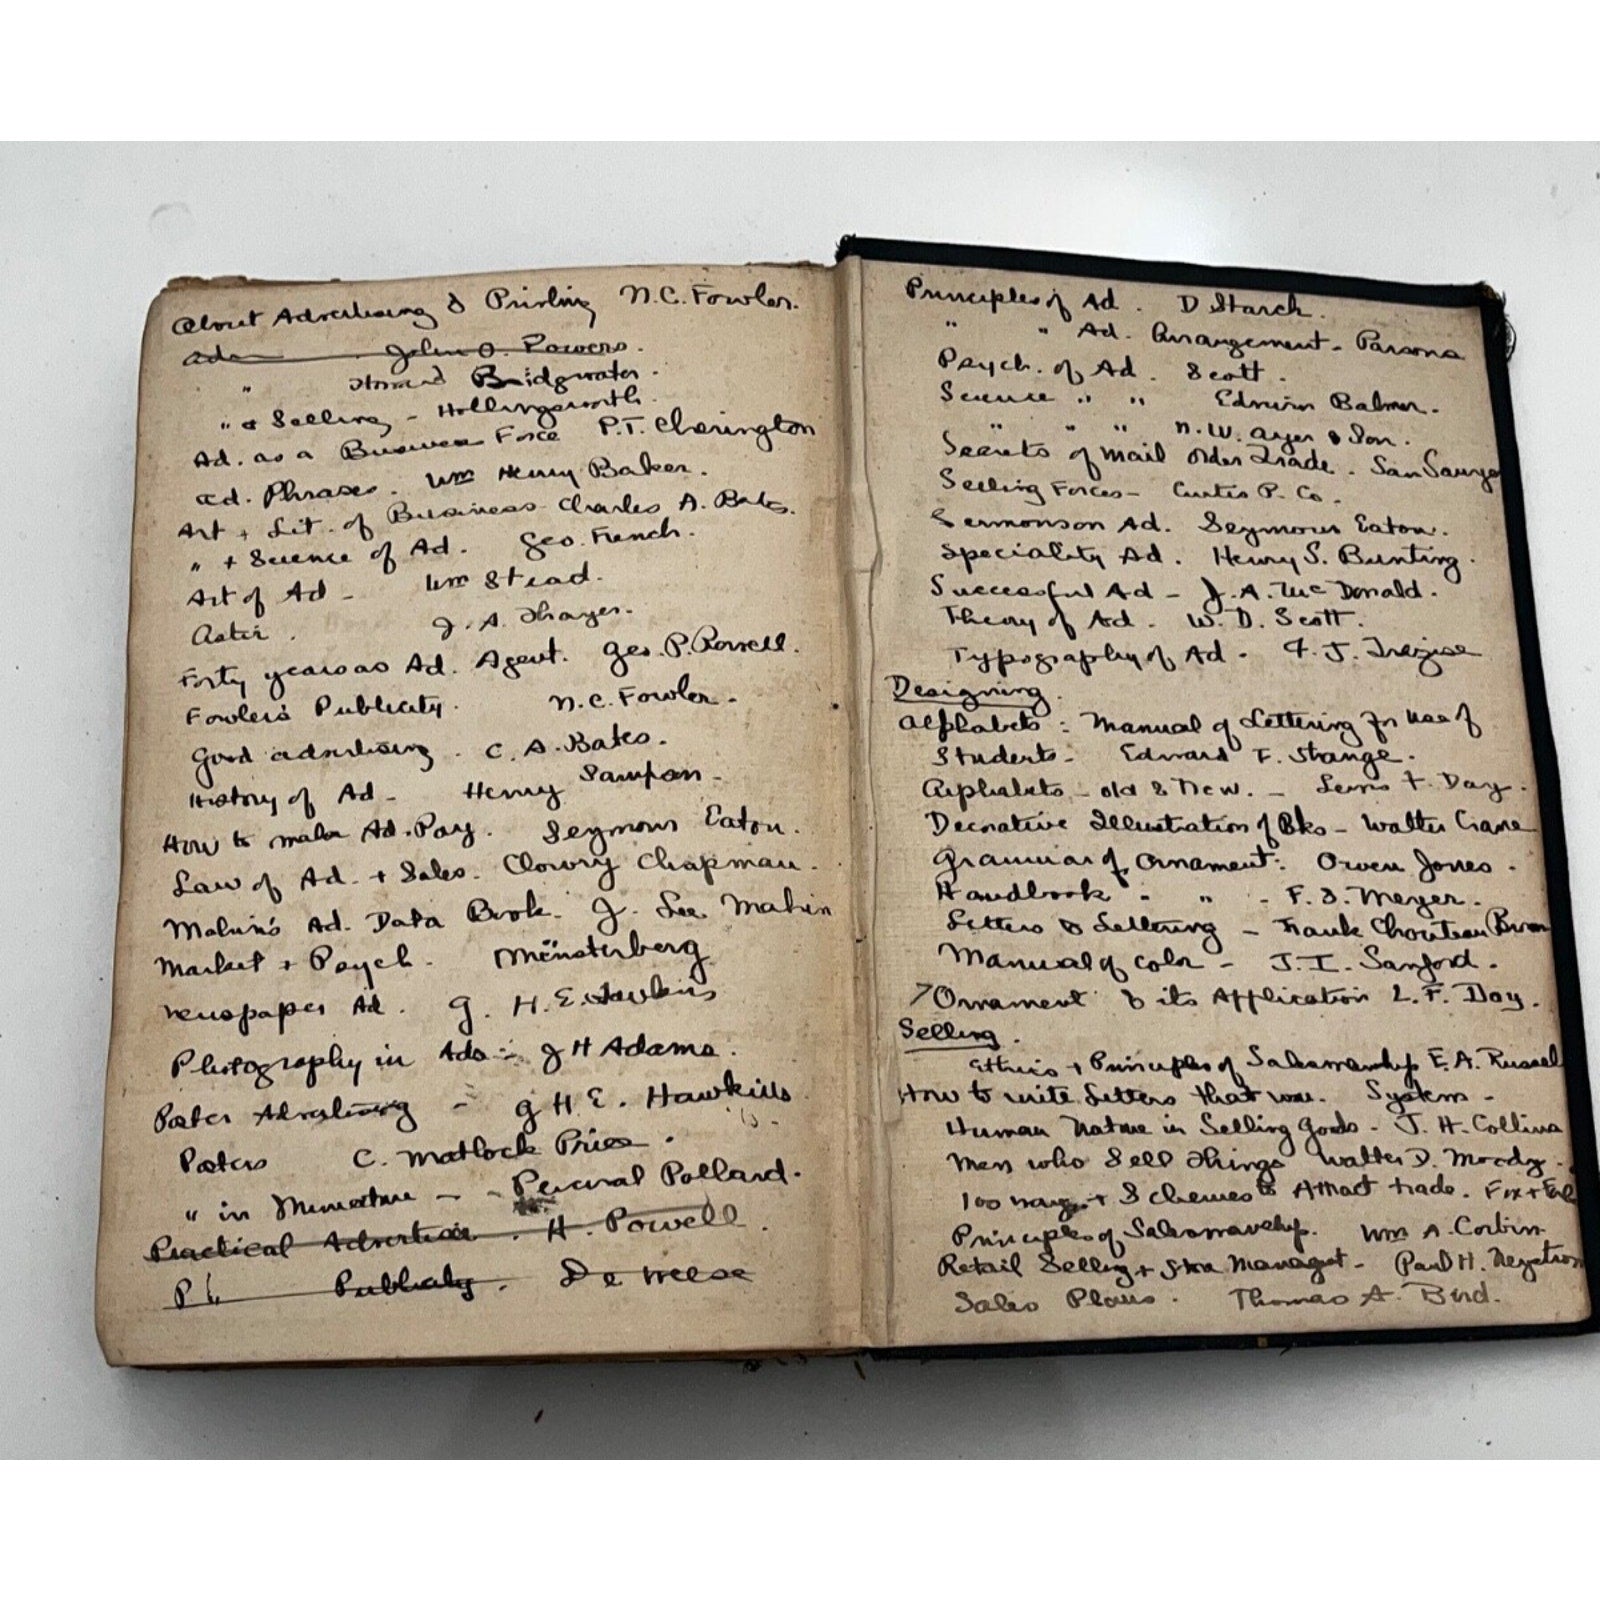 About Advertising & Printing N.C. Fowler.
Ads John O. Powers.
" Howard Bridgwater.
" & Selling - Hollingsworth.
Ad. as a Business Force P.T. Cherington
Ad. Phrases. Wm Henry Baker.
Art + Lit. of Business Charles A. Bates.
" + Science of Ad. Geo. French.
Art of Ad - Wm Stead.
Astir. J.A. Thayer.
Forty years as Ad. Agent. Geo. P. Rowell.
Fowler's Publicity. N.C. Fowler.
Good advertising. C.A. Bates.
History of Ad - Henry Sampson -
How to make Ad. Pay. Seymour Eaton.
Law of Ad. + Sales. Clowry Chapman.
Mahin's Ad. Data Book. J. Lee Mahin
Market + Psych. Münsterberg
Newspaper Ad. G. H. E. Hawkins
Photography in Ads - J H Adams.
Poster Advertising - G H E. Hawkins
Posters C. Matlock Price.
" in Miniature - - Percival Pollard.
Practical Advertise. H. Powell.
P Publicity. De Weese
Principles of Ad. D Starch.
" " Ad. Arrangement - Parsons
Psych. of Ad. Scott.
Science " " Edwin Balmer.
" " " N.W. Ayer & Son.
Secrets of Mail Order Trade. Sam Sawyer
Selling Forces - Curtis P. Co.
Sermons on Ad. Seymour Eaton.
Speciality Ad. Henry S. Bunting.
Successful Ad - J.A. McDonald.
Theory of Ad. W.D. Scott.
Typography of Ad - F.J. Trezise
Designing.
Alphabets: Manual of Lettering for use of
Students - Edward F. Strange.
Alphabets - old & New. - Lewis F. Day.
Decorative Illustration of Bks - Walter Crane
Grammar of Ornament: Owen Jones.
Handbook - " - F.S. Meyer.
Letters & Lettering - Frank Chouteau Brown
Manual of Color - J.I. Sanford.
Ornament & its Application L.F. Day.
Selling.
Ethics + Principles of Salesmanship E.A. Russell
How to write Letters that won. System -
Human Nature in Selling Goods - J.H. Collins
Men who Sell Things Walter D. Moody.
100 ways + Schemes to Attract trade.
Principles of Salesmanship. Wm A. Corbin
Retail Selling + Store Managet - Paul H. Neystrom
Sales Plans. Thomas A. Bird.